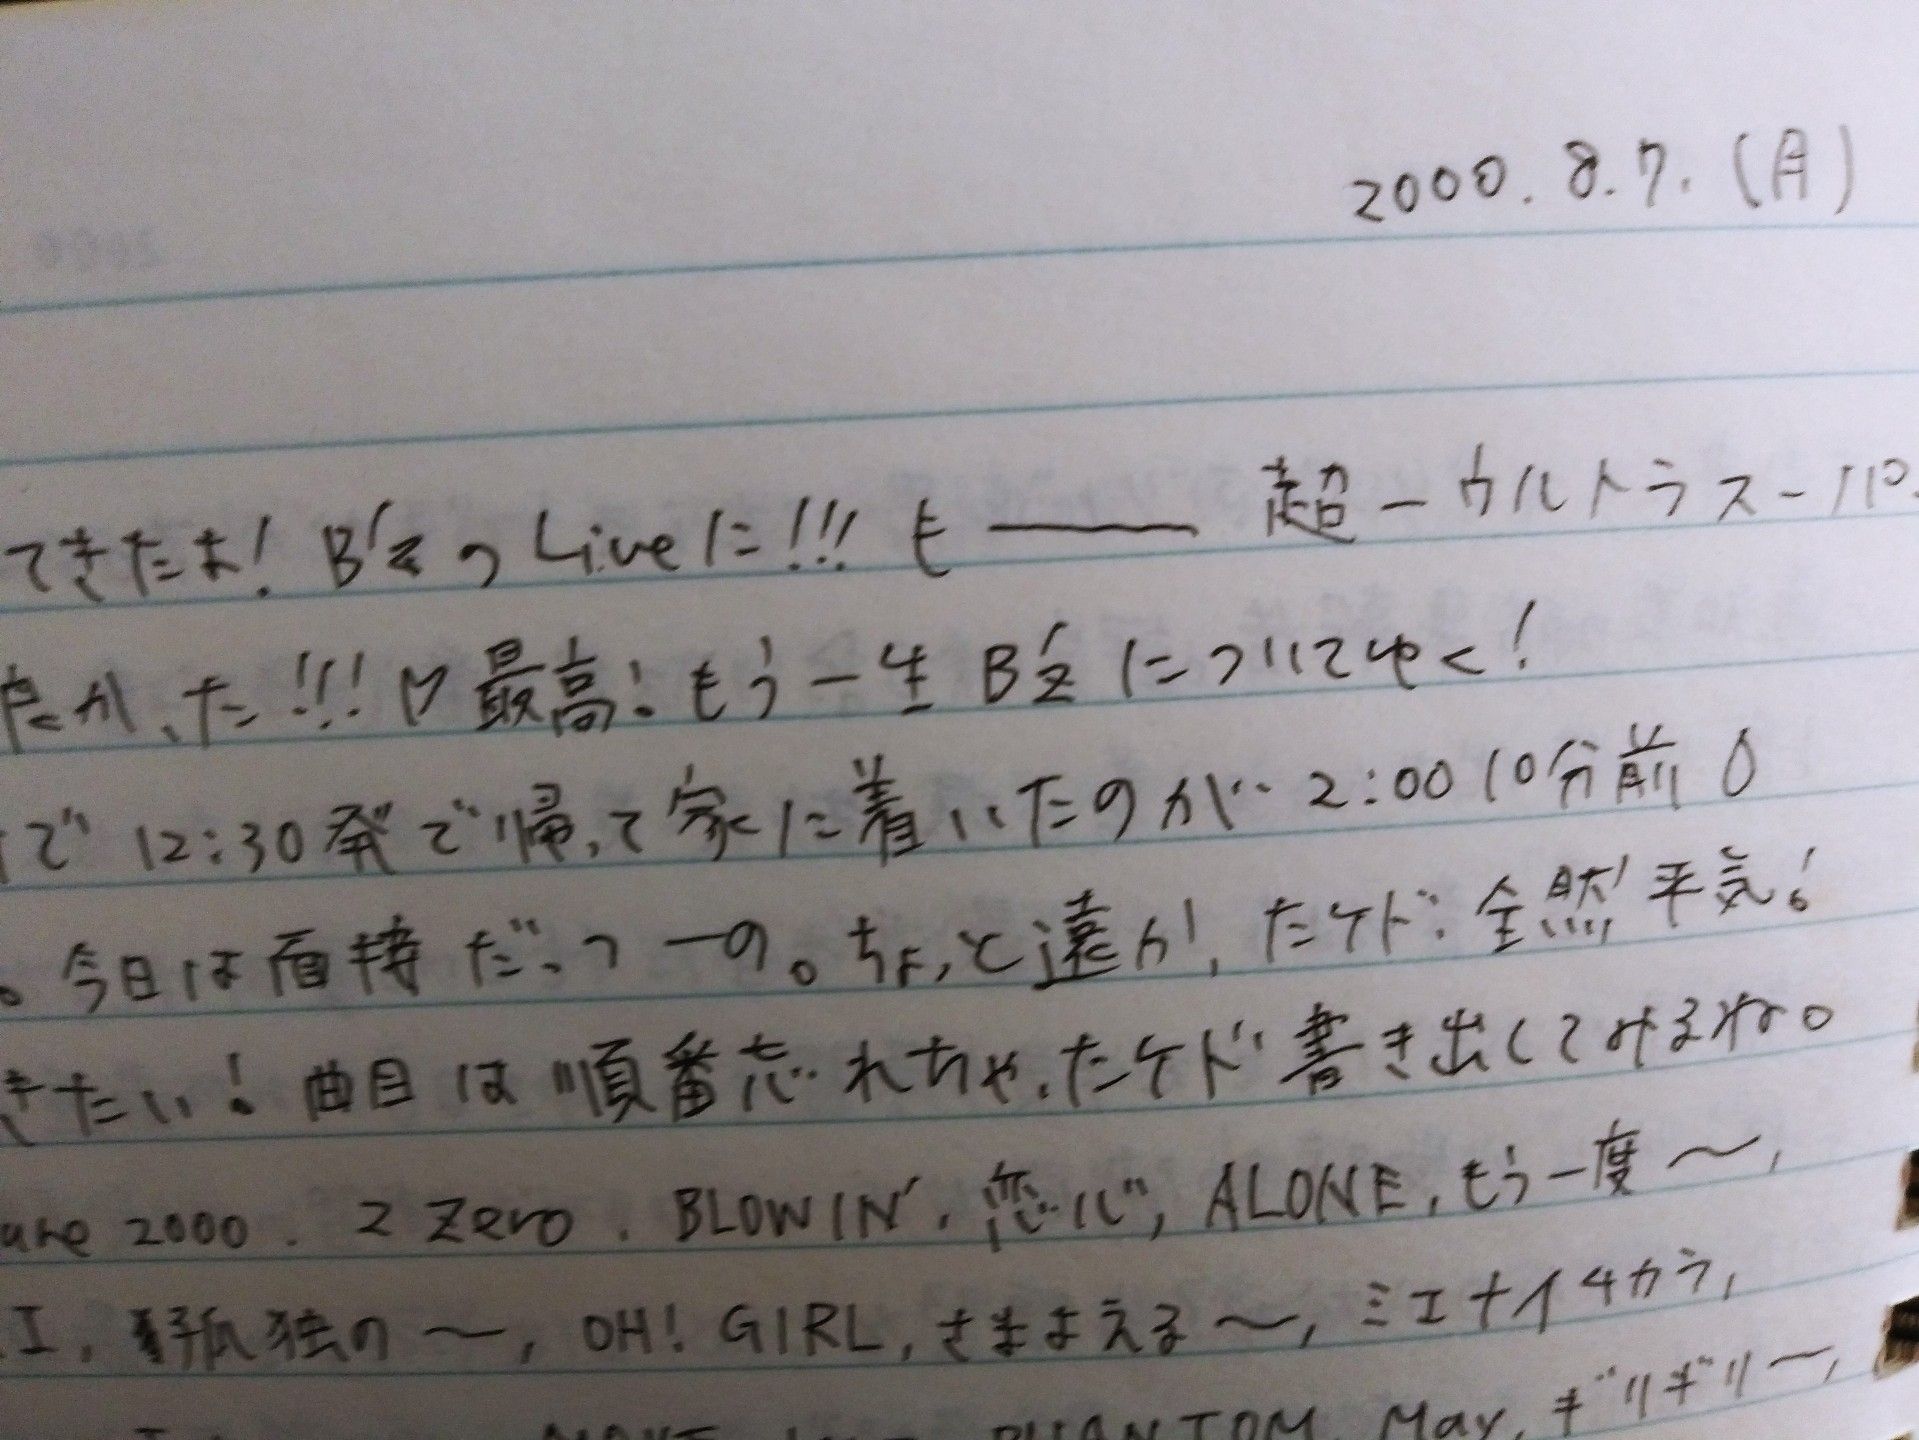 2000.8.7.(月)
てきたよ! B'zのLiveに!!! も―― 超ーウルトラスーパー
良かった!!! ♡ 最高! もう一生B'zについてゆく!
で 12:30発で帰って家に着いたのが 2:00 10分前
。今日は面接だっつーの。ちょっと遠かったケド 全然平気!
きたい! 曲目は順番忘れちゃったケド書き出してみるね。
ure 2000. Z Zero. BLOWIN', 恋心, ALONE, もう一度〜,
I, 孤独の〜, OH! GIRL, さまよえる〜, ミエナイチカラ,
PHANTOM, May, ギリギリ〜,